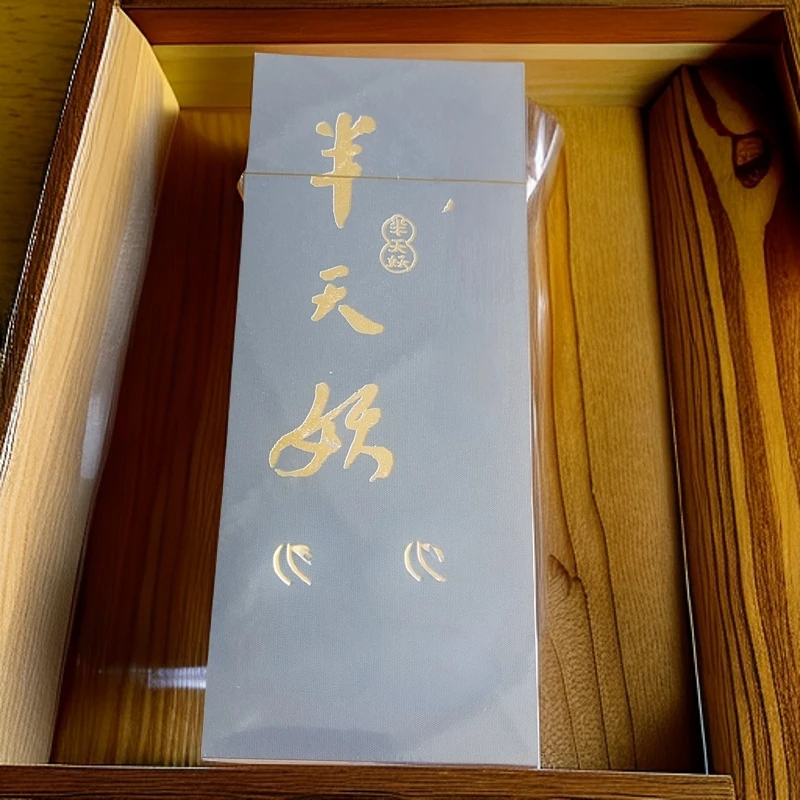 半天妖
半天妖